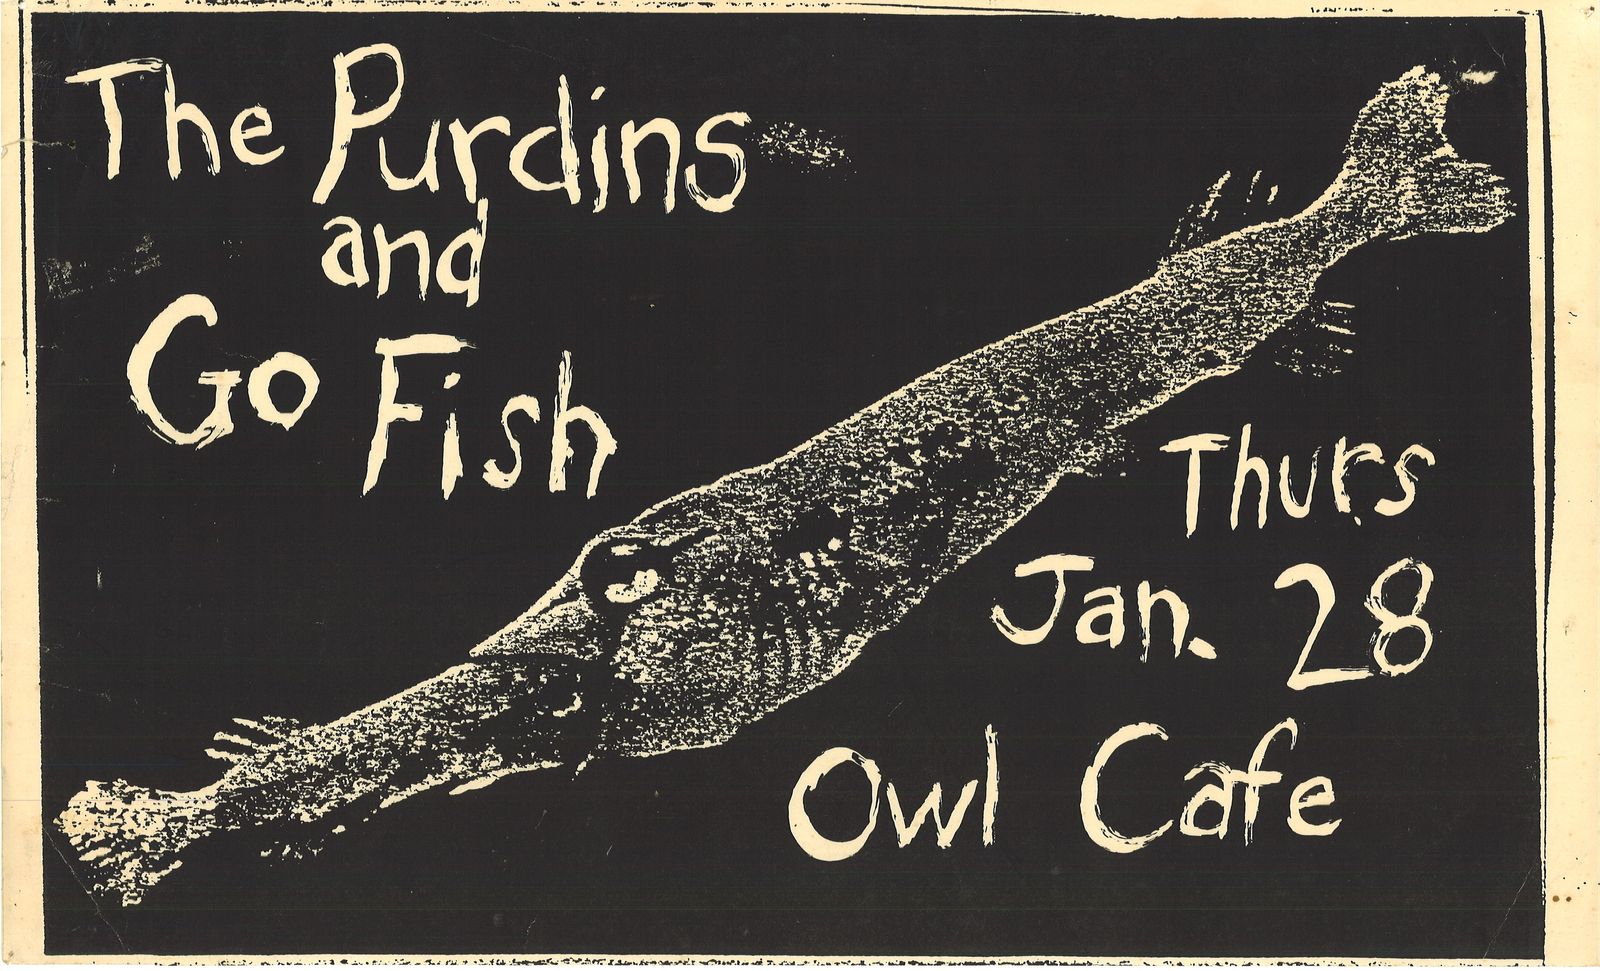 The Purdins
and
Go Fish
Thurs
Jan. 28
Owl Cafe